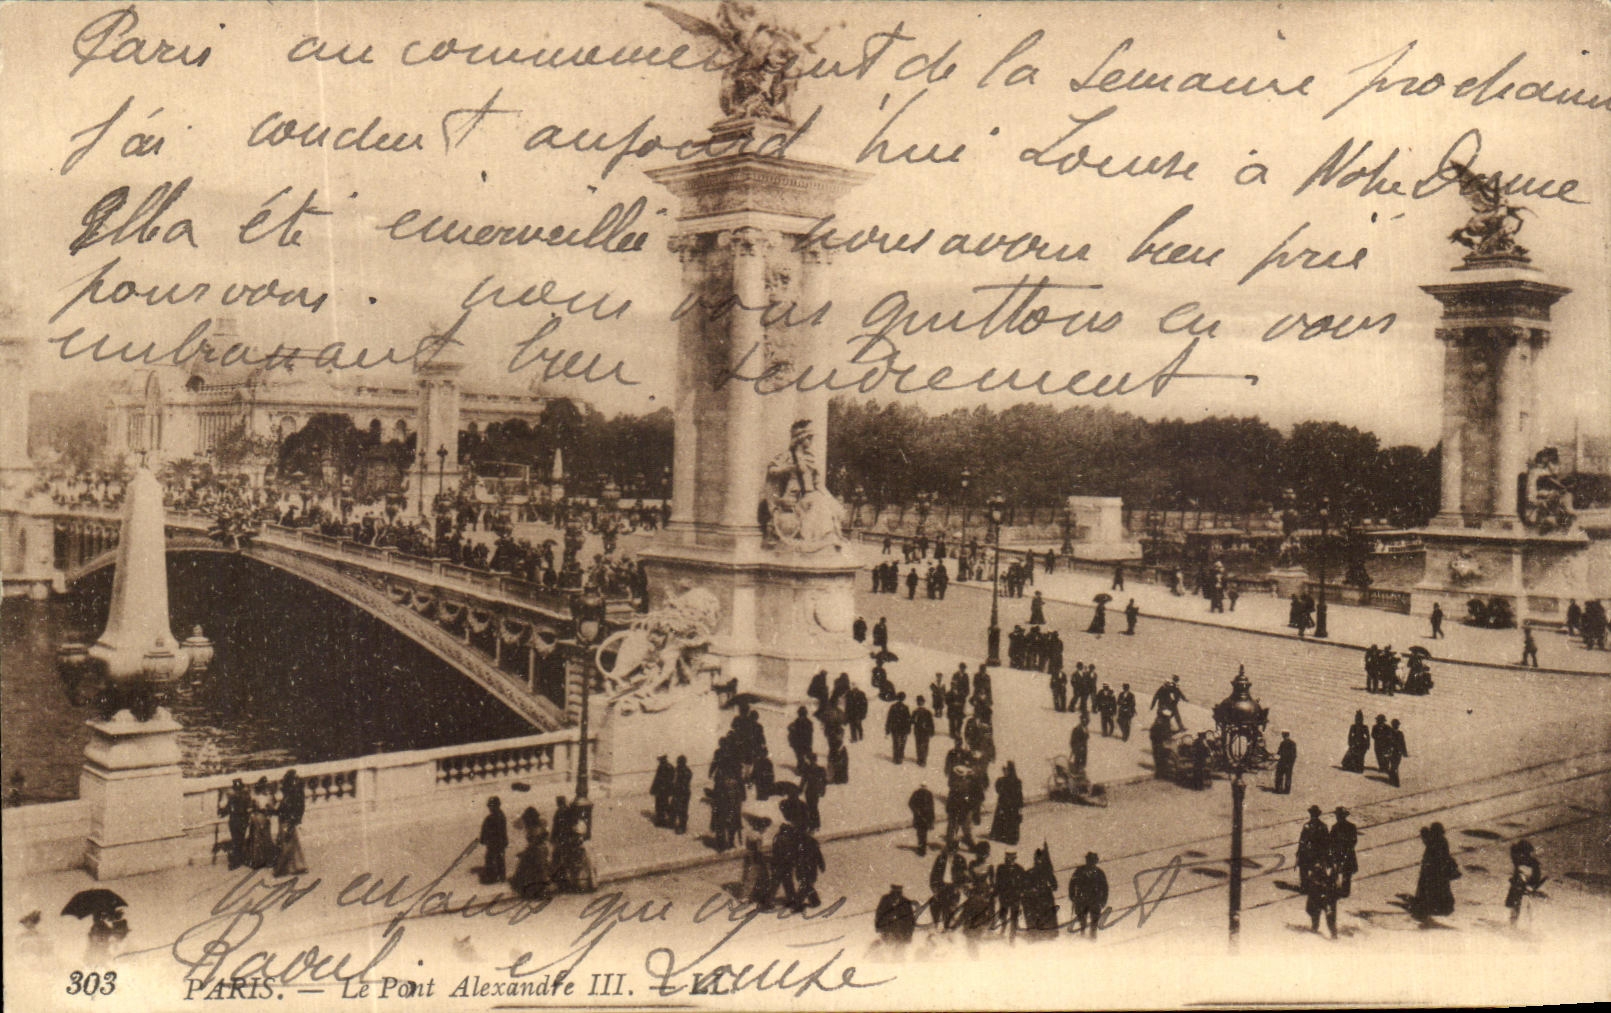 Paris au commencement de la semaine prochaine
J'ai conduit aujourd'hui Louise à Notre Dame
Elle a été émerveillée nous avons bien prié
pour vous. nous vous quittons en vous
embrassant bien tendrement.
Vos enfants que vous aiment
Raoul et Louise
303 PARIS. — Le Pont Alexandre III. — LL.